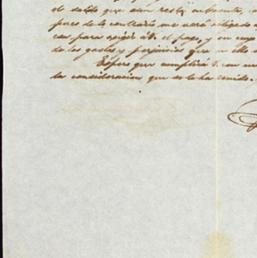 el saldo que aun resta
pues de lo contrario me veré obligado a
para exigir de el pago, y en
de los gastos y perjuicios que
Espero que cumplirá con
la consideracion que se le ha tenido.